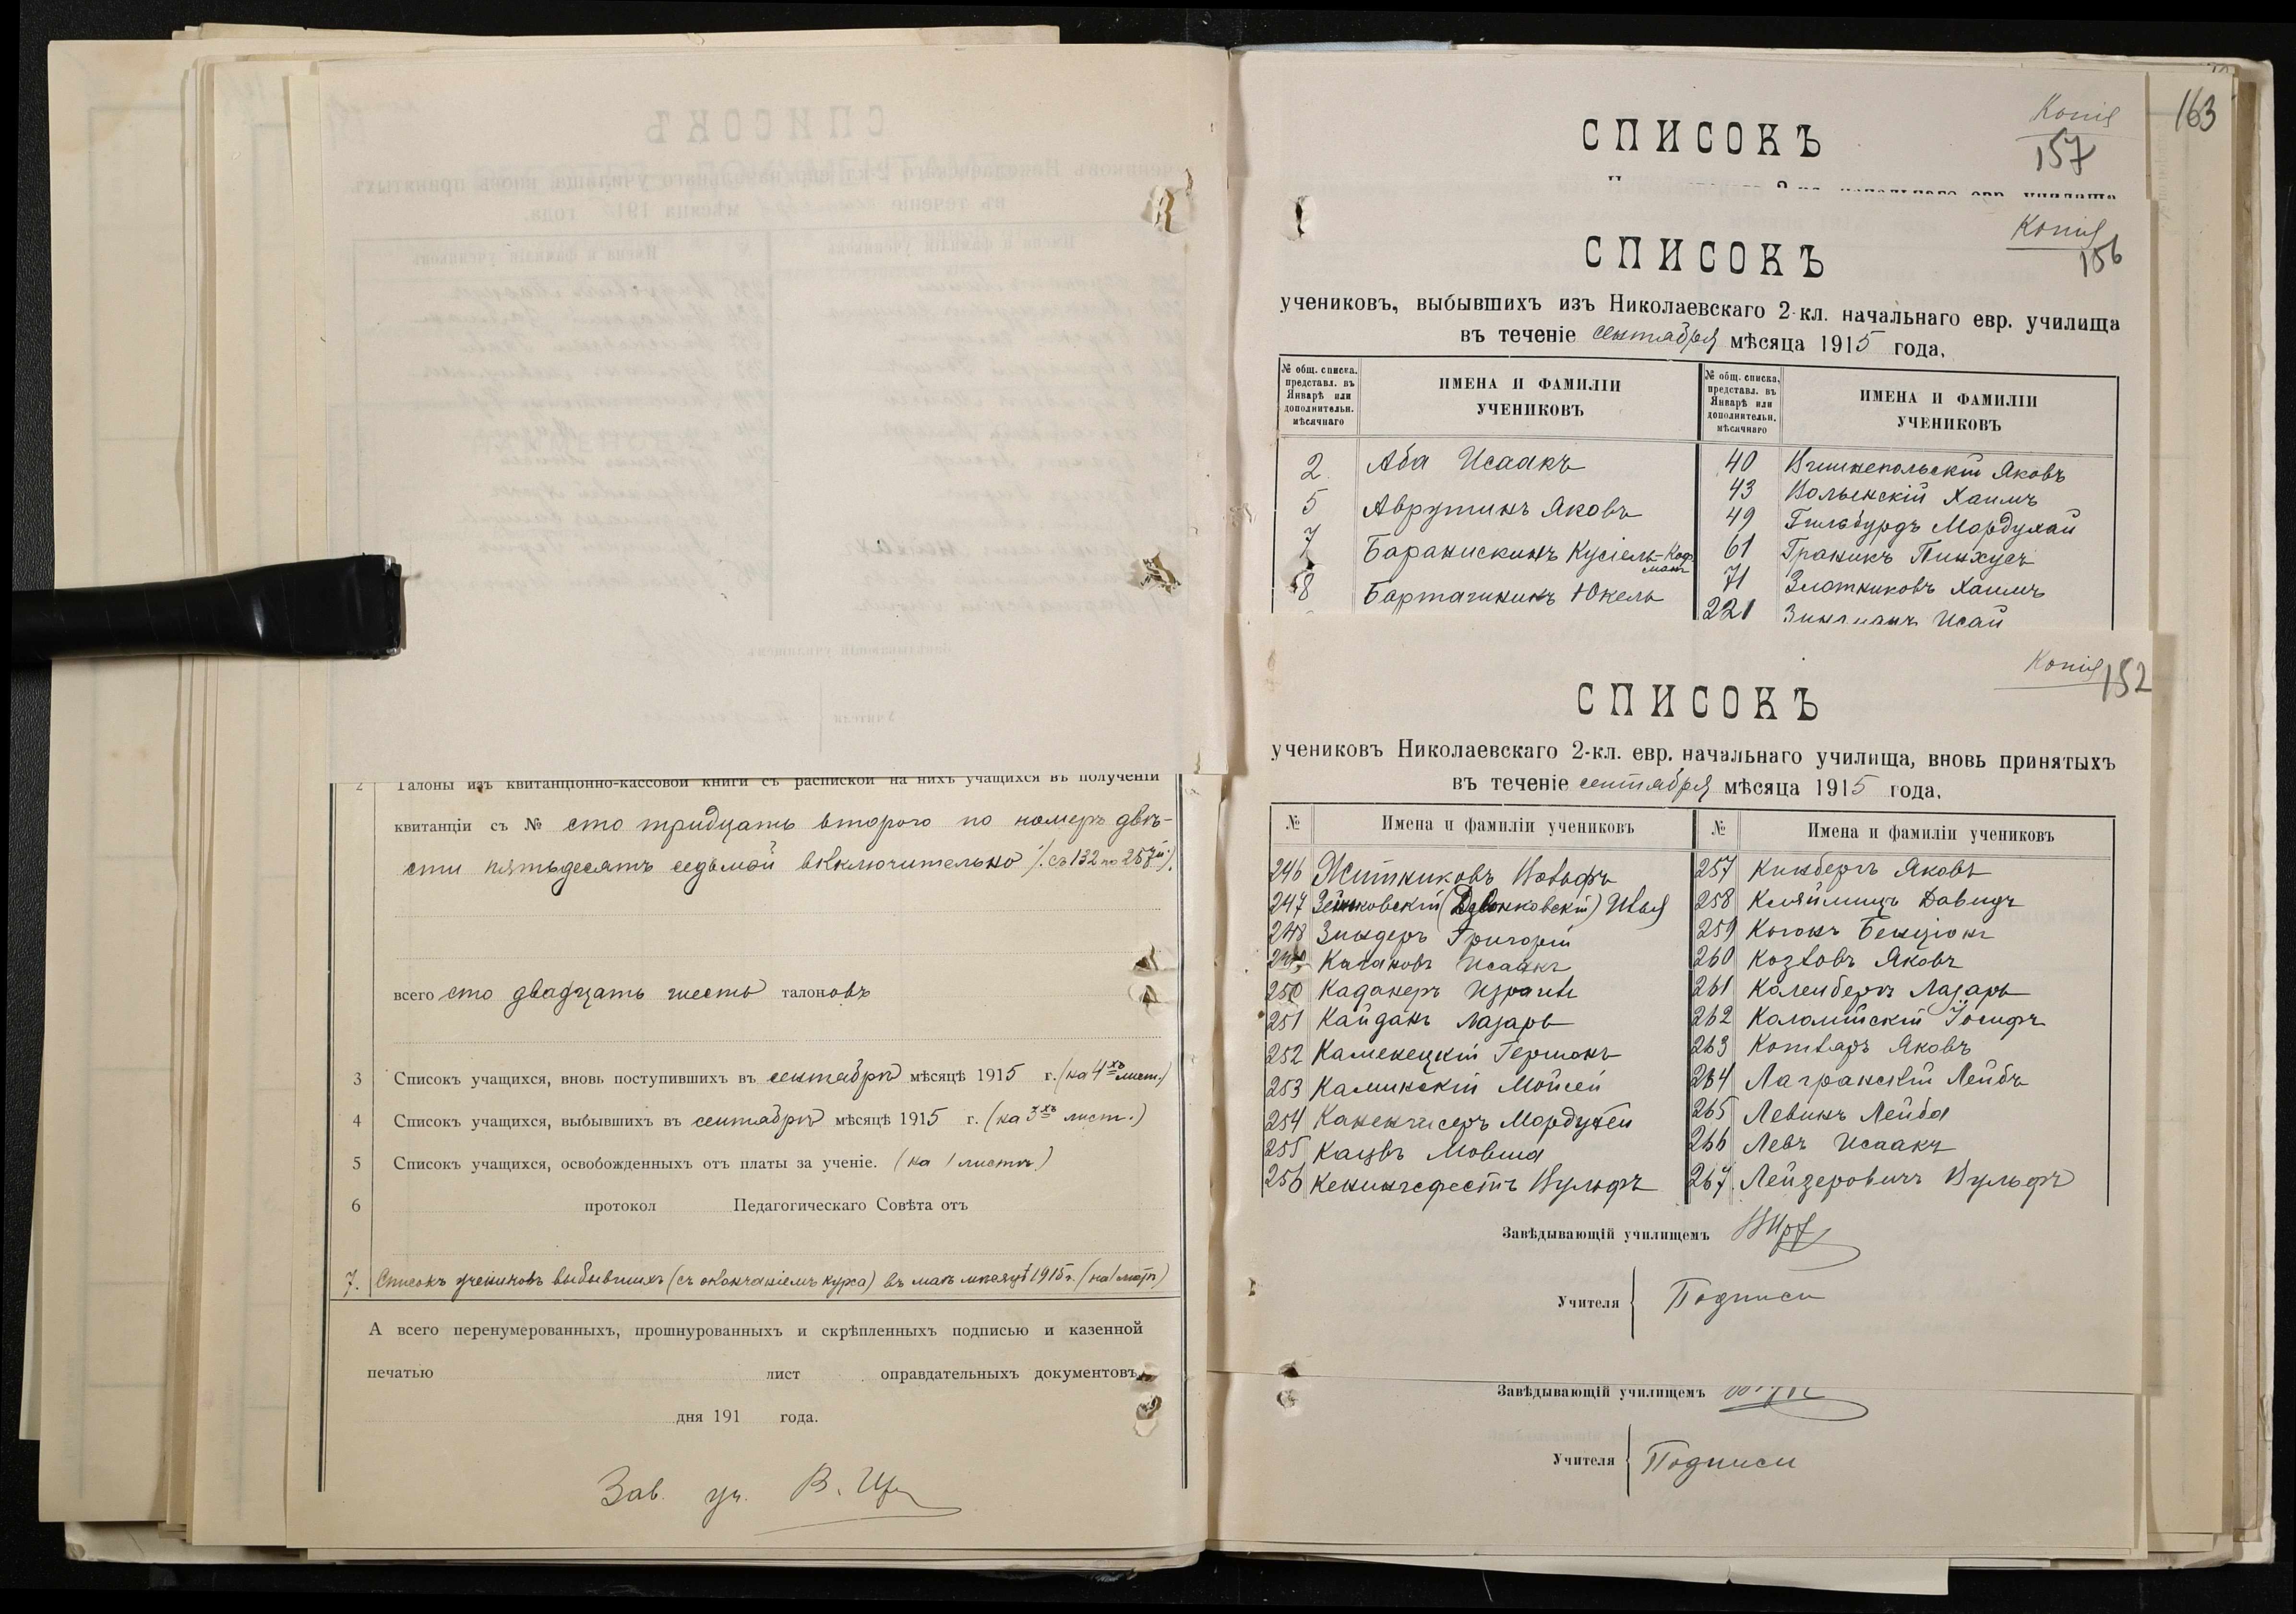 2 Талоны изъ квитанціонно-кассовой книги съ распиской на нихъ учащихся въ полученіи
квитанціи съ № сто тридцать второго по номеръ двѣ-
сти пятьдесятъ седьмой включительно /.съ 132 по 257й./.
всего сто двадцать шесть талоновъ
3 Списокъ учащихся, вновь поступившихъ въ сентябрѣ мѣсяцѣ 1915 г. (на 4хъ лист.)
4 Списокъ учащихся, выбывшихъ въ сентябрѣ мѣсяцѣ 1915 г. (на 3хъ лист.)
5 Списокъ учащихся, освобожденныхъ отъ платы за ученіе. (на 1 листѣ)
6 протокол Педагогическаго Совѣта отъ
7. Списокъ учениковъ выбывшихъ (съ окончаніемъ курса) въ маѣ мѣсяцѣ 1915 г. (на 1 листѣ)
А всего перенумерованныхъ, прошнурованныхъ и скрѣпленныхъ подписью и казенной
печатью лист оправдательныхъ документовъ.
дня 191 года.
Зав. уч. В.
163
Копія
157
СПИСОКЪ
2-кл. начальнаго евр. училища
Копія
156
СПИСОКЪ
учениковъ, выбывшихъ изъ Николаевскаго 2-кл. начальнаго евр. училища
въ теченіе сентября мѣсяца 1915 года.
№ общ. списка, представл. въ Январѣ или дополнительн. мѣсячнаго
ИМЕНА И ФАМИЛІИ УЧЕНИКОВЪ
№ общ. списка, представл. въ Январѣ или дополнительн. мѣсячнаго
ИМЕНА И ФАМИЛІИ УЧЕНИКОВЪ
2 Аба Исаакъ
5 Аврутинъ Яковъ
7 Баранискинъ Кусіель-Кофманъ
8 Барташникъ Юкель
40 Вишнепольскій Яковъ
43 Волынскій Хаимъ
49 Гильбурдъ Мордухай
61 Граникъ Пинхусъ
71 Златниковъ Хаимъ
221 Зингманъ Исай
Копія
152
СПИСОКЪ
учениковъ Николаевскаго 2-кл. евр. начальнаго училища, вновь принятыхъ
въ теченіе сентября мѣсяца 1915 года.
№ Имена и фамиліи учениковъ
№ Имена и фамиліи учениковъ
246 Житниковъ Вольфъ
247 Зеньковскій (Дзвонковскій) Илья
248 Зиндеръ Григорій
249 Казаковъ Исаакъ
250 Кадакеръ Израиль
251 Кайданъ Лазарь
252 Каменецкій Гершонъ
253 Каминскій Мойсей
254 Каненгисеръ Мордухей
255 Кацевъ Мовша
256 Кенингсфестъ Вульфъ
257 Кинбергъ Яковъ
258 Кляймицъ Давидъ
259 Когонъ Бенціонъ
260 Козловъ Яковъ
261 Коленбергъ Лазарь
262 Коломійскій Іосифъ
263 Котляръ Яковъ
264 Лагранскій Лейбъ
265 Левинъ Лейба
266 Левъ Исаакъ
267 Лейзеровичъ Вульфъ
Завѣдывающій училищемъ
Учителя { Подписи
Завѣдывающій училищемъ
Учителя { Подписи